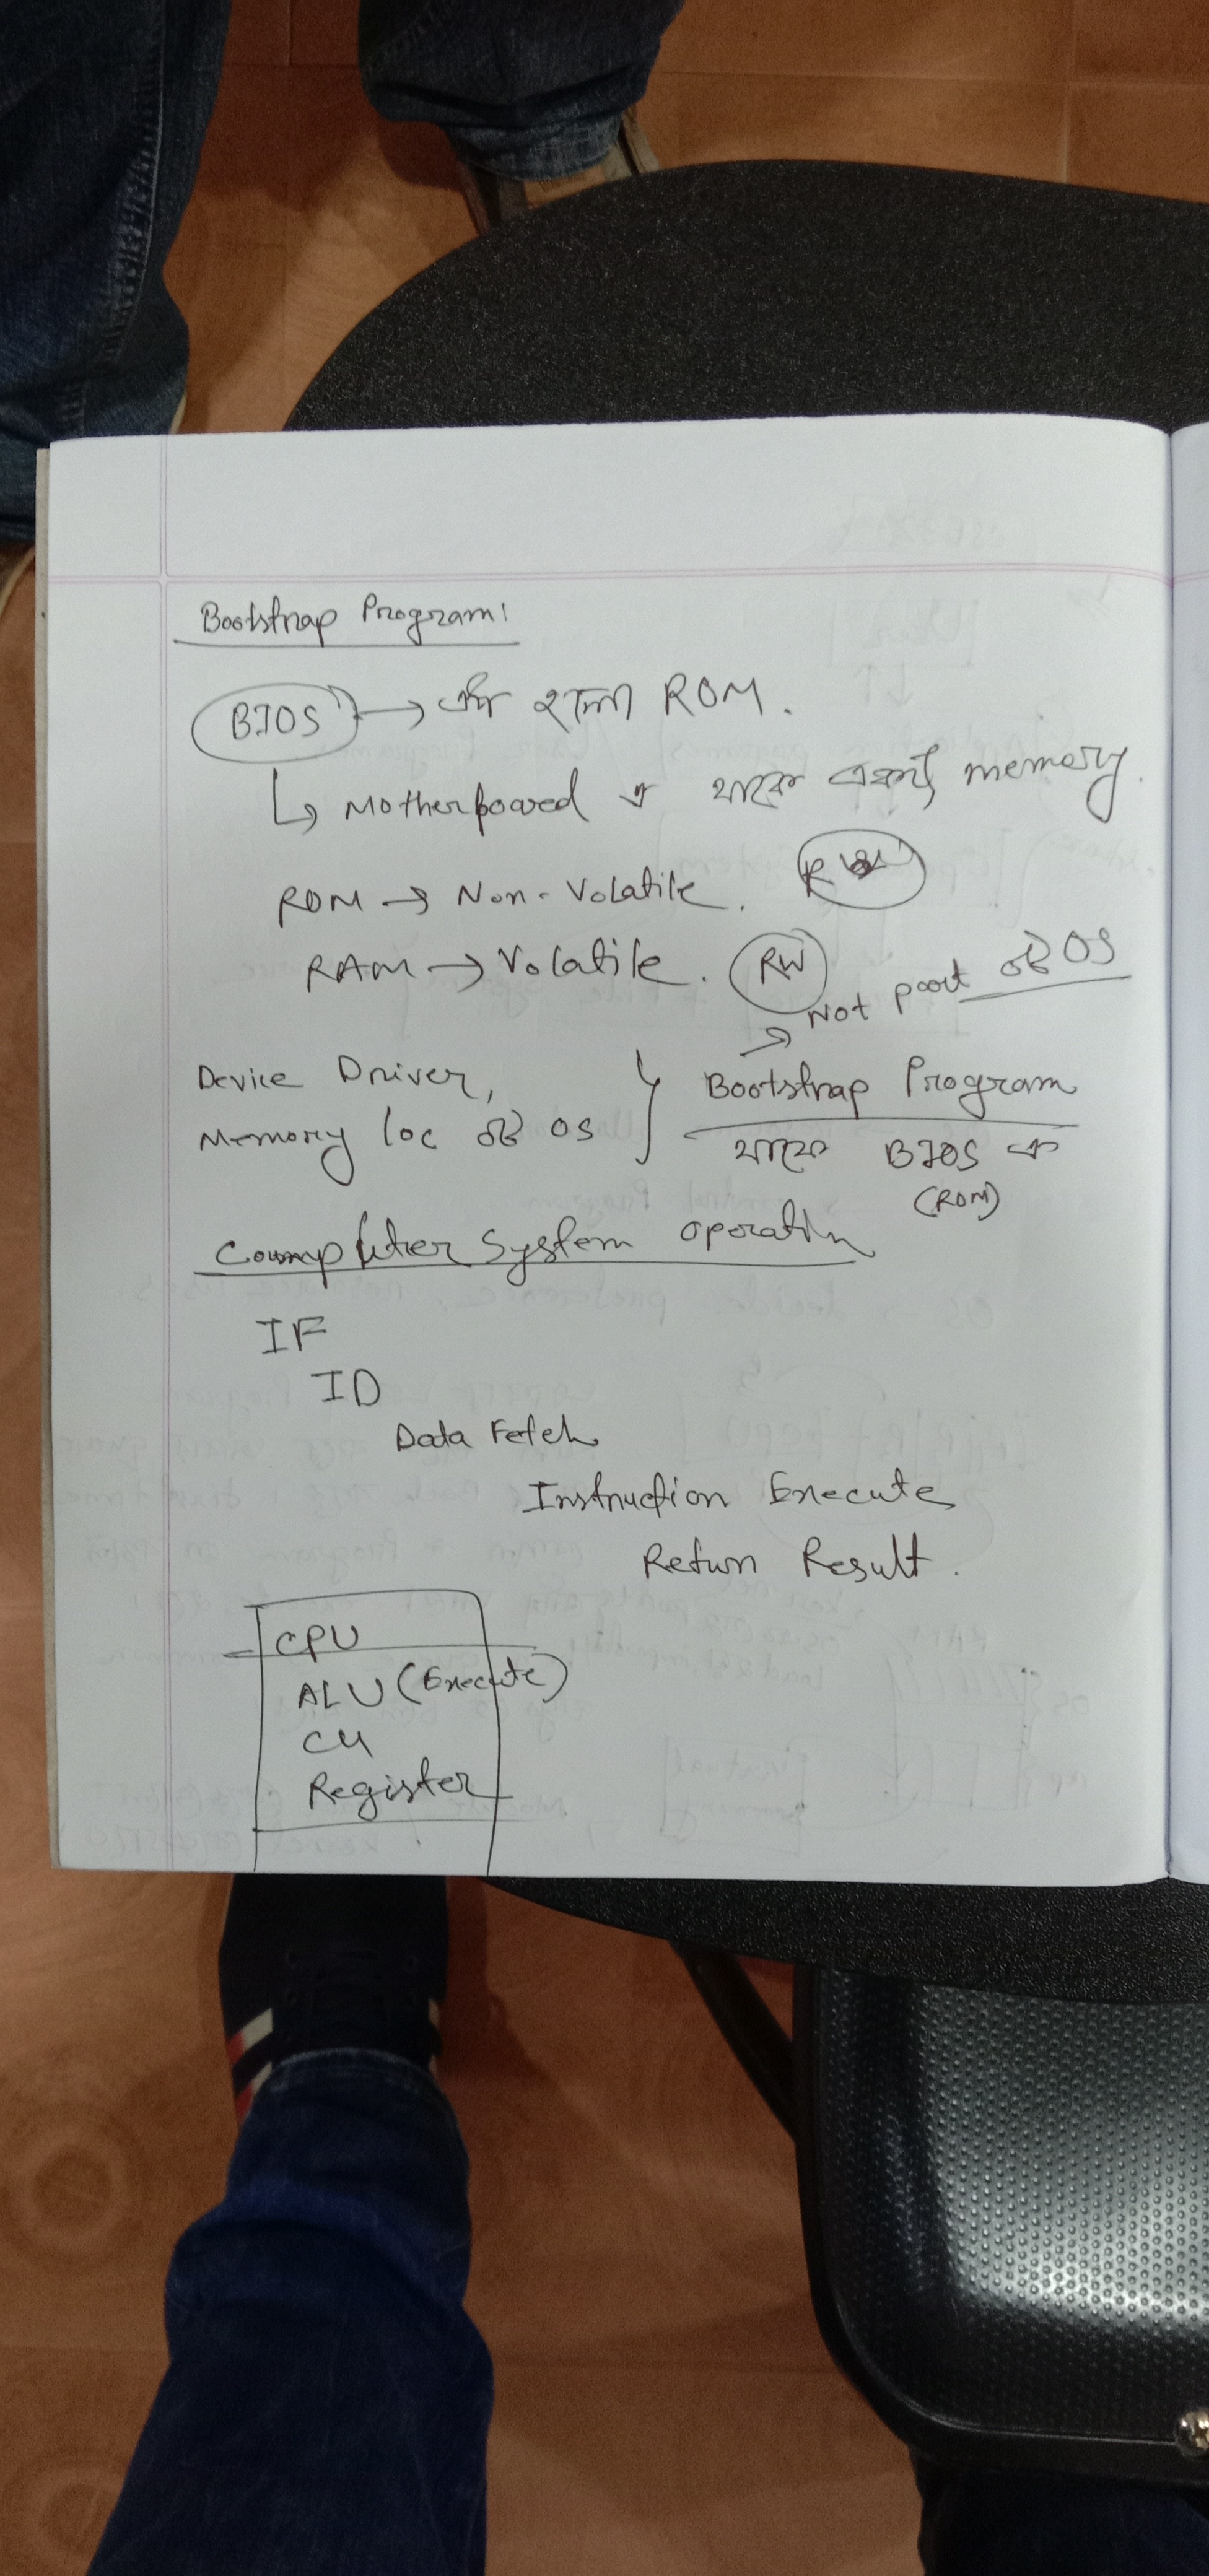 Bootstrap Program:
BIOS → এটা হলো ROM.
↳ Motherboard এ থাকে একটা memory.
ROM → Non-Volatile. R
RAM → Volatile. RW
→ Not part of OS
Device Driver,
Memory loc of OS
Bootstrap Program
থাকে BIOS এ
(ROM)
Computer System operation
IF
ID
Data Fetch
Instruction Execute
Return Result.
CPU
ALU (Execute)
CU
Register